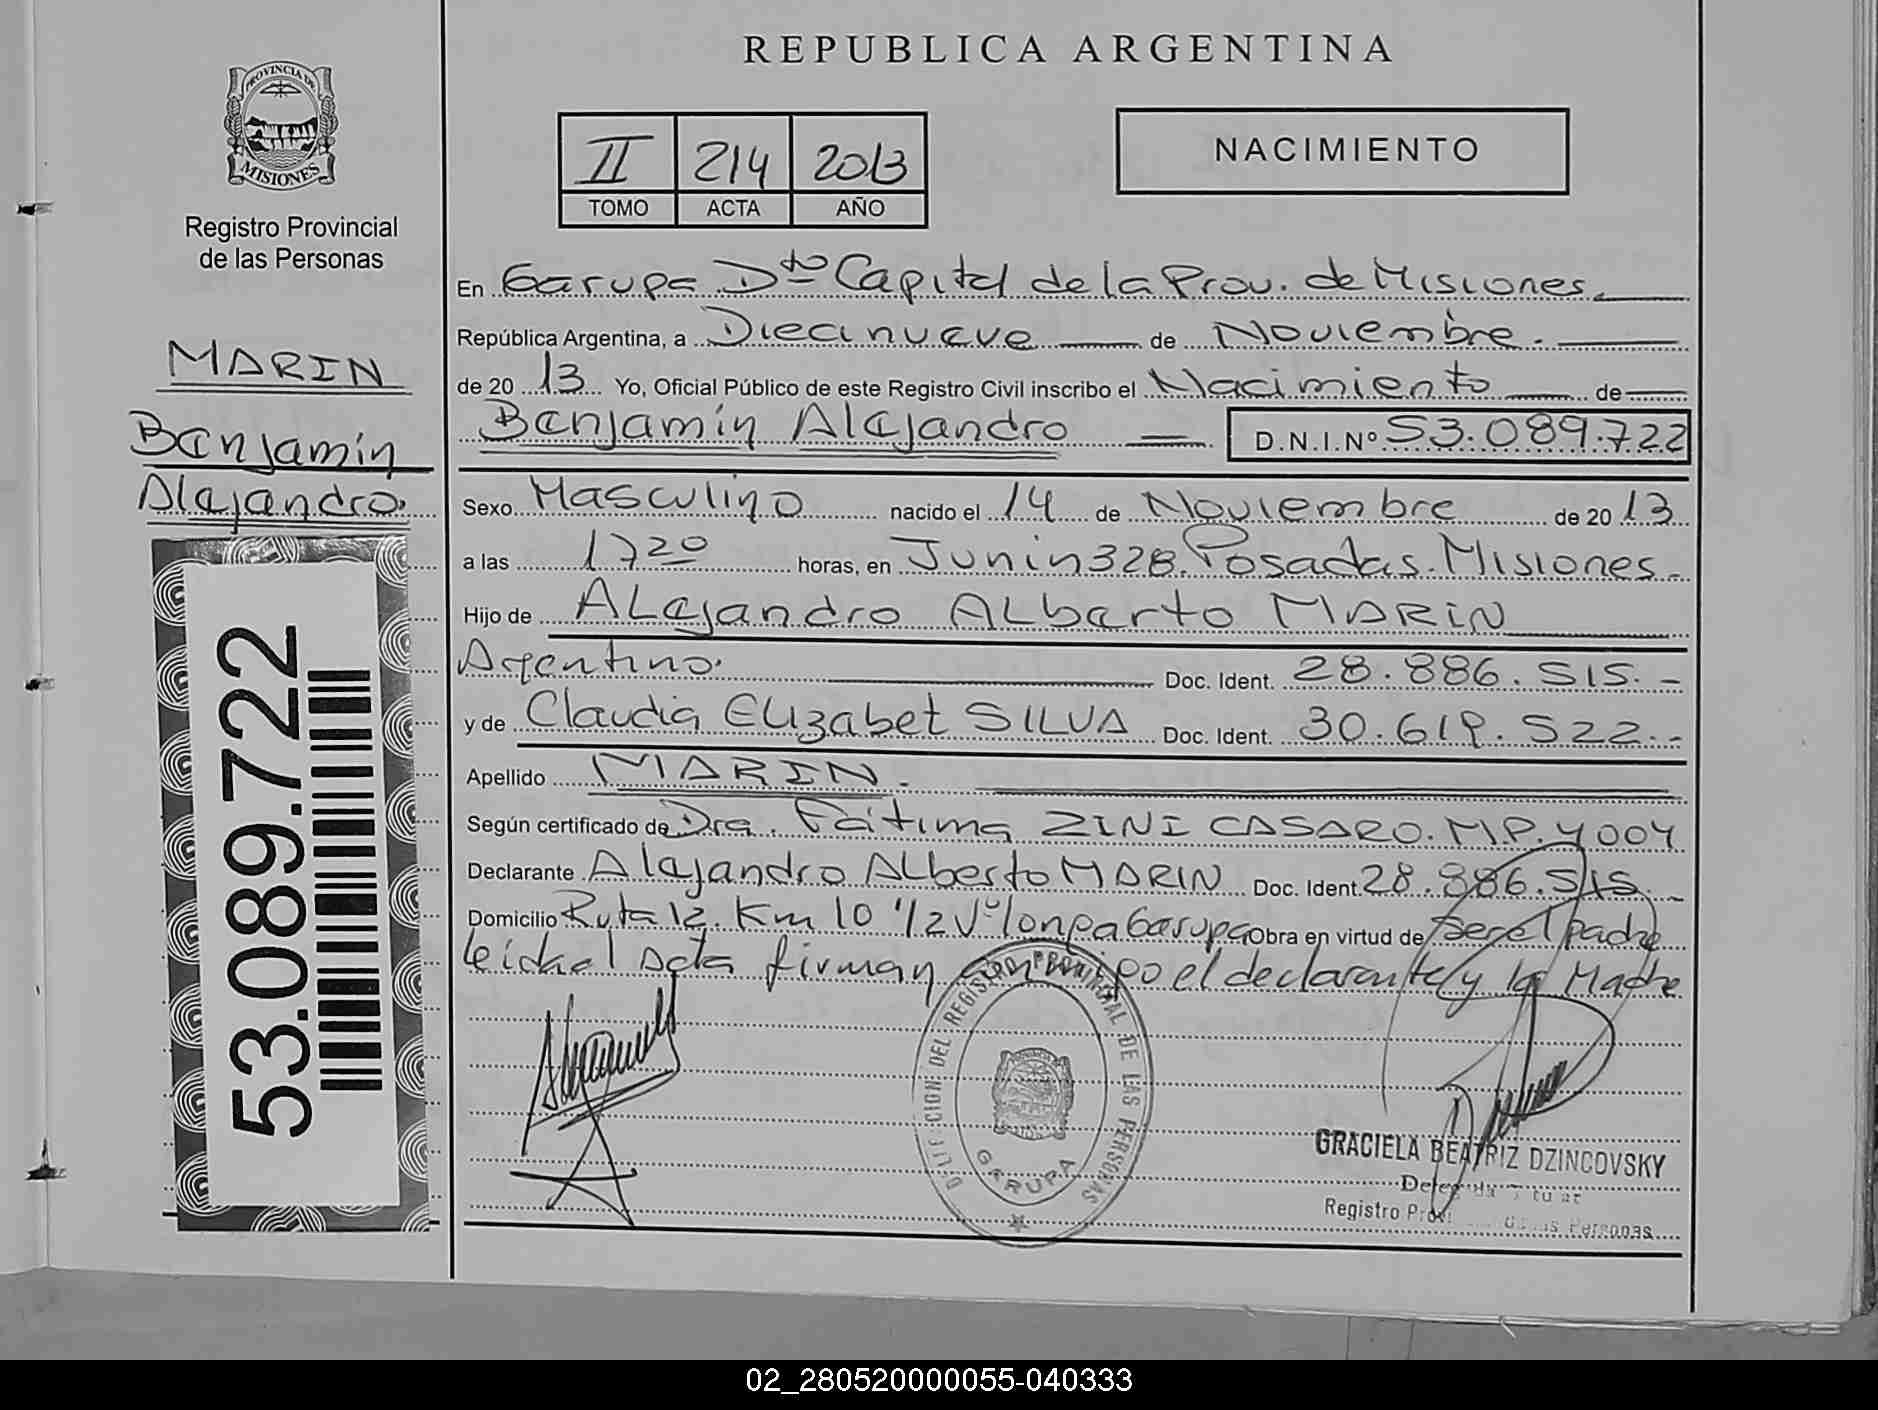 REPUBLICA ARGENTINA
PROVINCIA DE
MISIONES
Registro Provincial
de las Personas
II 214 2013
TOMO ACTA AÑO
NACIMIENTO
MARIN
Benjamín
Alejandro.
53.089.722
En Garupa Dto Capital de la Prov. de Misiones.
República Argentina, a Diecinueve de Noviembre.
de 20 13 Yo, Oficial Público de este Registro Civil inscribo el Nacimiento de
Benjamín Alejandro D.N.I.Nº 53.089.722
Sexo Masculino nacido el 14 de Noviembre de 20 13
a las 17 20 horas, en Junin 328. Posadas. Misiones.
Hijo de Alejandro Alberto MARIN
Argentino. Doc. Ident. 28.886.515.-
y de Claudia Elizabet SILVA Doc. Ident. 30.619.522.-
Apellido MARIN.
Según certificado de Dra. Fátima ZINI CASARO. M.P. 4004
Declarante Alejandro Alberto MARIN Doc. Ident. 28.886.515.
Domicilio Ruta 12. Km 10 1/2 Garupa Obra en virtud de ser el padre
leida el Acta firman el declarante y la Madre
DEL REGISTRO PROVINCIAL DE LAS PERSONAS
GARUPA
GRACIELA BEATRIZ DZINCOVSKY
Registro de las Personas
02_280520000055-040333